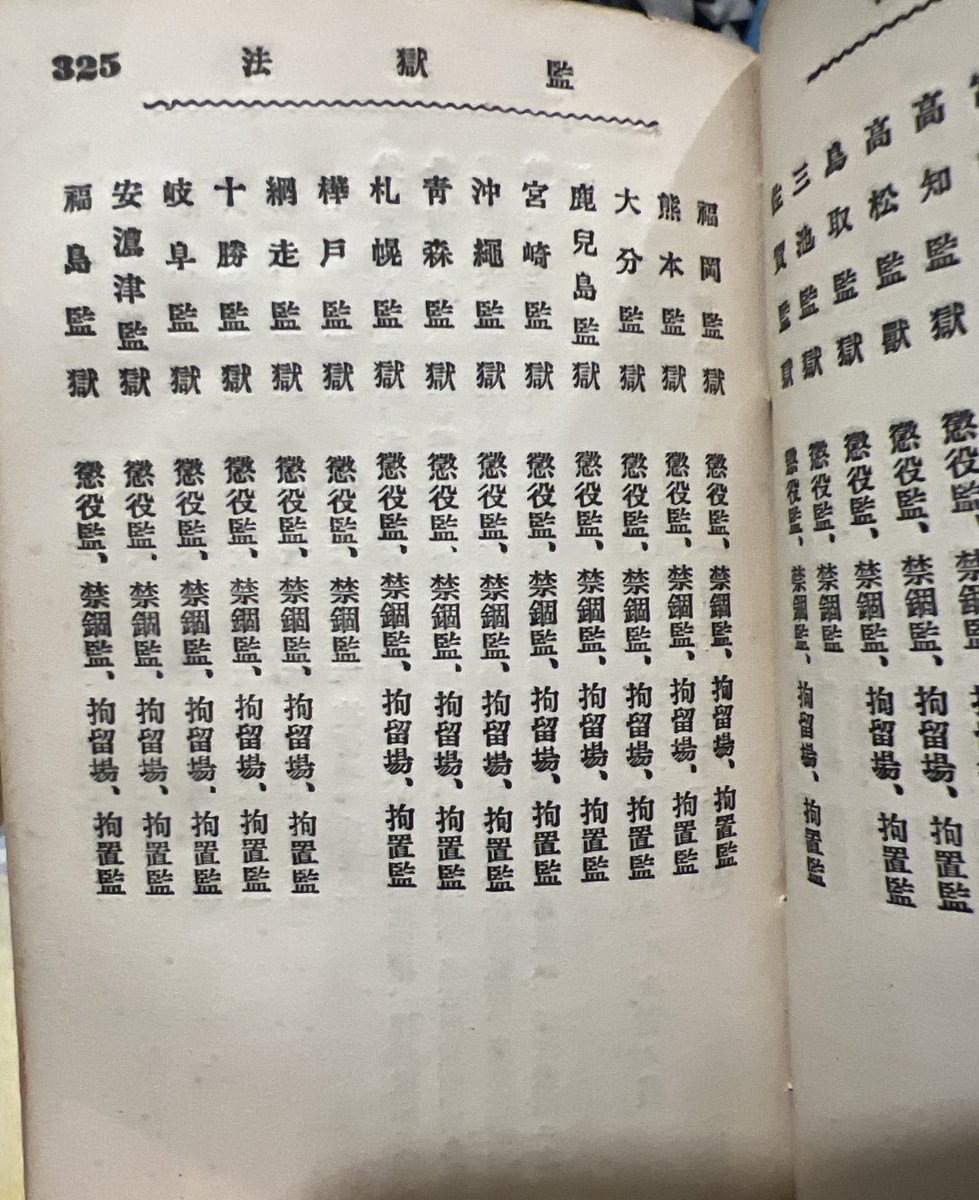 高知監獄 懲役監、禁錮監
高松監獄 懲役監、禁錮監、拘留場、拘置監
鳥取監獄 懲役監、禁錮監、拘留場、拘置監
三池監獄 懲役監、禁錮監
佐賀監獄 懲役監、禁錮監、拘留場、拘置監
監獄法
325
福岡監獄 懲役監、禁錮監、拘留場、拘置監
熊本監獄 懲役監、禁錮監、拘留場、拘置監
大分監獄 懲役監、禁錮監、拘留場、拘置監
鹿兒島監獄 懲役監、禁錮監、拘留場、拘置監
宮崎監獄 懲役監、禁錮監、拘留場、拘置監
沖繩監獄 懲役監、禁錮監、拘留場、拘置監
青森監獄 懲役監、禁錮監、拘留場、拘置監
札幌監獄 懲役監、禁錮監、拘留場、拘置監
樺戶監獄 懲役監、禁錮監
網走監獄 懲役監、禁錮監、拘留場、拘置監
十勝監獄 懲役監、禁錮監、拘留場、拘置監
岐阜監獄 懲役監、禁錮監、拘留場、拘置監
安濃津監獄 懲役監、禁錮監、拘留場、拘置監
福島監獄 懲役監、禁錮監、拘留場、拘置監